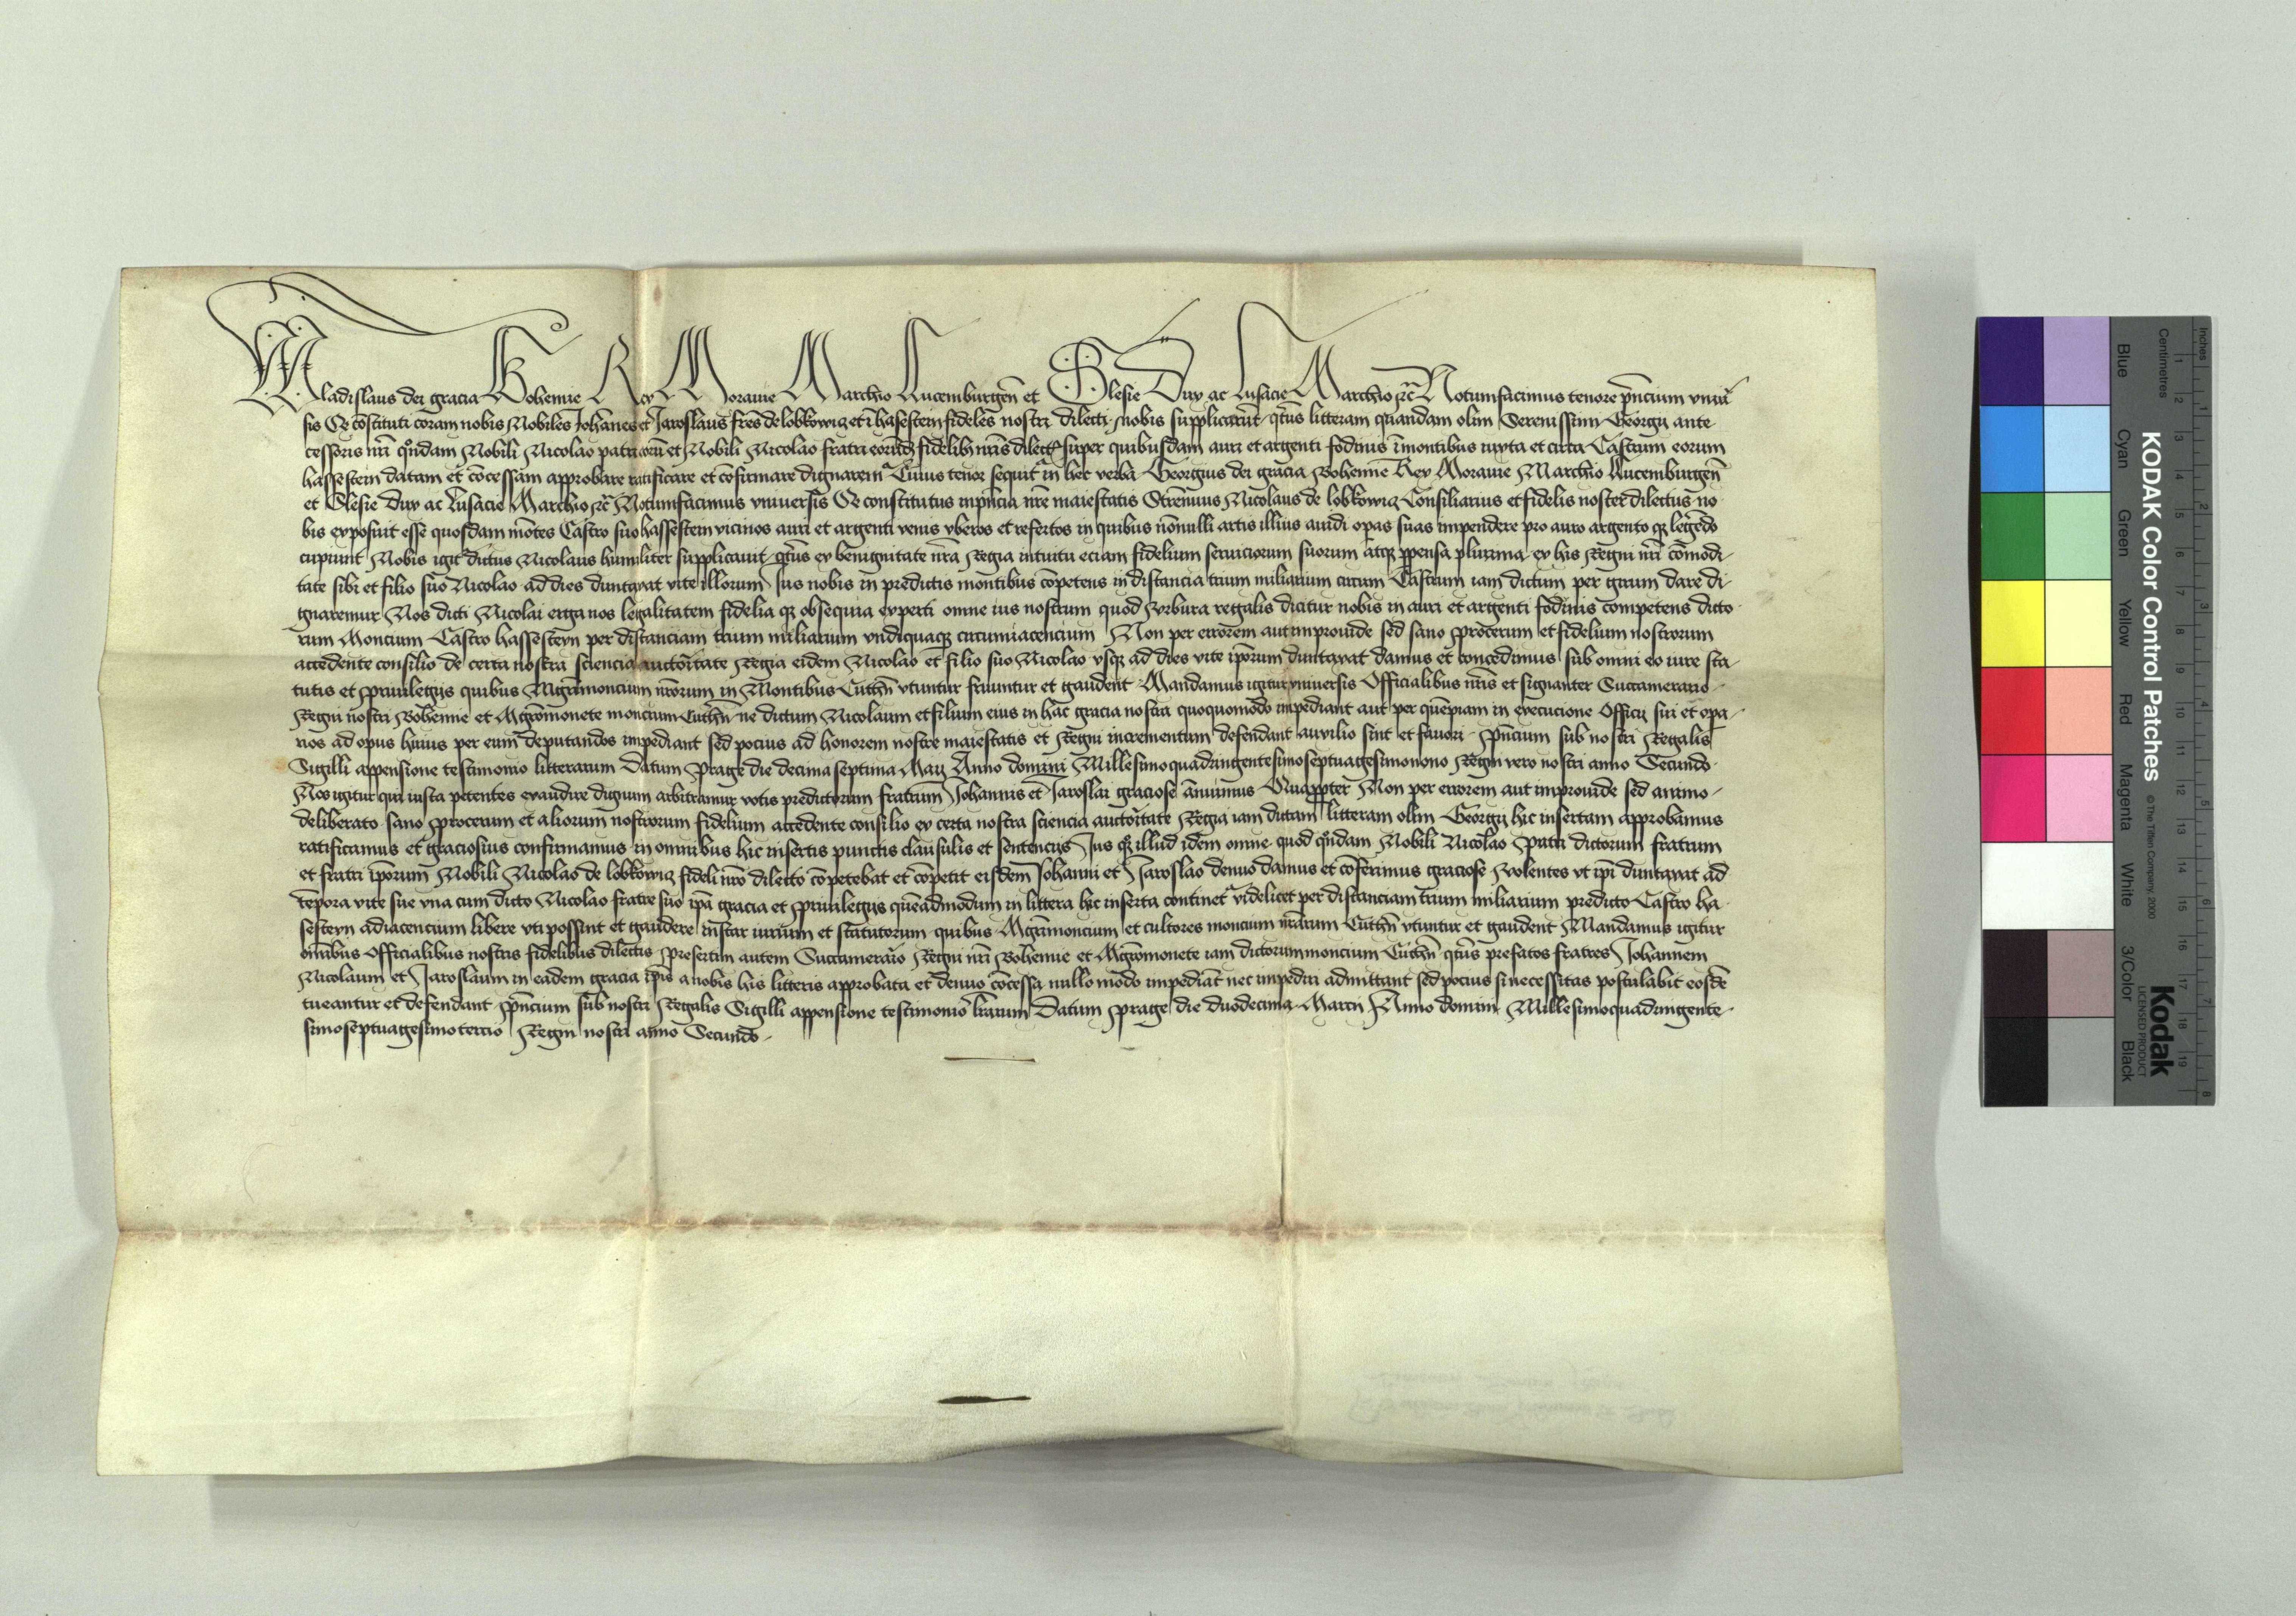 Wladislaus dei gracia Bohemie Rex Moravie Marchio Lucemburgeñ et Slesie Dux ac Lusacie Marchio ꝛc̃ Notumfacimus tenore p̃ncium vniũ
sis Qc cōstituti coram nobis Nobiles Johānes et Jaroslaus fr̃es de lobkowicz et ī hasestein fideles nostri dilecti nobis supplicarūt q̃tus litteram quandam olim Serenissimi Georgij ante
cessoris nr̃i qͦndam Nobili Nicolao patri eorū et Nobili Nicolao fratri fidelib; nr̃is super quibusdam auri et argenti fodinis ī montibus iuxta et circa Castrum eorum
hassestein datam et cōcessam approbare ratificare et cōfirmare dignarem̃ Cuius tenor sequit̃ in hec verba Georgius dei gracia Bohemie Rex Moravie Marchio Lucemburgeñ
et Slesie Dux ac Lusacie Marchio ꝛc̃ Notumfacimus vniuersis Qc constitutus inp̃ncia nr̃e maiestatis Strenuus Nicolaus de lobkowicz Consiliarius et fidelis noster dilectus no
bis exposuit esse quosdam mōtes Castro suo hassestein vicinos auri et argenti venis vberos et refertos in quibus nōnulli artis illius auidi opas suas impendere pro auro argento qꝫ legēdo
cupiunt Nobis igit̃ dictus Nicolaus humiliter supplicauit q̃tus ex benignitate nr̃a Regia intuitu eciam fidelium seruiciorum suorum atqꝫ ꝑpensa plurima ex his Regni nr̃i cōmodi
tate sibi et filio suo Nicolao ad dies duntaxat vite illorum Jus nobis in predictis montibus cōpetens in distancia trium miliarium circum Castrum iam dictum per girum dare di
gnaremur Nos dicti Nicolai erga nos legalitatem fidelia qꝫ obsequia experti omne ius nostrum quod vrbura regalis dicitur nobis in auri et argenti fodinis competens dicto
rum Moncium Castro hassesteyn per distanciam trium miliarium vndiquaqꝫ circumiacencium Non per errorem aut improuide sed sano Procerum et fidelium nostrorum
accedente consilio de certa nostra sciencia auctoritate Regia eidem Nicolao et filio suo Nicolao vsqꝫ ad dies vite ip̃orum duntaxat damus et concedimus sub omni eo iure sta
tutis et Priuilegijs quibus Mgr̃imoncium nr̃orum in Montibus Cuthn̄ vtuntur fruuntur et gaudent Mandamus igitur vniuersis Officialibus nr̃is et signanter Succamerario
Regni nostri Bohemie et Mgr̃omonete moncium Cuthn̄ ne dictum Nicolaum et filium eius in hac gracia nostra quoquomodo impediant aut per quēpiam in execucione Officij sui et opa
rios ad opus huius per eum deputandos impediant sed pocius ad honorem nostre maiestatis et Regni incrementum defendant auxilio sint et fauori P̃ncium sub nostri Regalis
Sigilli appensione testimonio litterarum Datum Prage die decima septima Maij Anno domini Millesimoquadringentesimoseptuagesimonono Regni vero nostri anno Secundo
Nos igitur qui iusta petentes exaudire dignum arbitramur votis predictorum fratrum Johannis et Jaroslai graciose ānuimus Quaꝓpter Non per errorem aut improuide sed animo
deliberato sano Procerum et aliorum nostrorum fidelium accedente consilio ex certa nostra sciencia auctoritate Regia iam dictam litteram olim Georgij hic insertam approbamus
ratificamus et graciosius confirmamus in omnibus hic insertis punctis clausulis et sentencijs Jus qꝫ illud idem omne quod qͦndam Nobili Nicolao Patri dictorum fratrum
et fratri ip̃orum Nobili Nicolao de lobkowicz fideli nr̃o dilecto cōpetebat et cōpetit eisdem Johanni et Jaroslao denuo damus et cōferimus graciose Volentes vt ip̃i duntaxat ad
tēpora vite sue vna cum dicto Nicolao fratre suo ip̃a gracia et Priuilegijs quēadmodum in littera hic inserta continet̃ videlicet per distanciam trium miliarium predicto Castro ha
sesteyn adiacencium libere vti possint et gaudere instar iurium et statutorum quibus Mgr̃imoncium et cultores moncium nr̃orum Cuthn̄ vtuntur et gaudent Mandamus igitur
omībus Officialibus nostris fidelibus dilectis Presertim autem Succamerario Regni nr̃i Bohemie et Mgr̃omonete iam dictorum moncium Cuthn̄ q̃tus prefatos fratres Johannem
Nicolaum et Jaroslaum in eadem gracia ip̃is a nobis his litteris approbata et denuo cōcessa nullo modo impediāt nec impediri admittant sed pocius si necessitas postulabit eosdē
tueantur et defendant P̃ncium sub nostri Regalis Sigilli appensione testimonio lr̃arum Datum Prage die duodecima Marcij Anno domini Millesimoquadringente
simoseptuagesimotercio Regni nostri anno Secundo
KODAK Color Control Patches © The Tiffen Company, 2000
Kodak
LICENSED PRODUCT
Blue Cyan Green Yellow Red Magenta White 3/Color Black
Inches
Centimetres